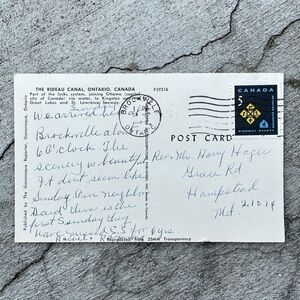 THE RIDEAU CANAL, ONTARIO, CANADA
P39216
Part of the locks system, joining Ottawa (capital
city of Canada) via water, to Kingston
Great Lakes and St. Lawrence Seaway.
Sunday
We arrived here at
Brockville about
6 O'clock. The
scenery is beautiful
It dont seem like
Sunday. Our neighbor
said this is the
first Sunday they
have missed S.S for yrs.
BROCKVILLE
ONTARIO
CANADA
5
HIGHWAY SAFETY
POST CARD
Rev. Mr. Harry Hager
Grace Rd
Hampstead
Md. 21074
Published by The Gananoque Reporter, Gananoque, Ontario
Reproduced from 35MM Transparency